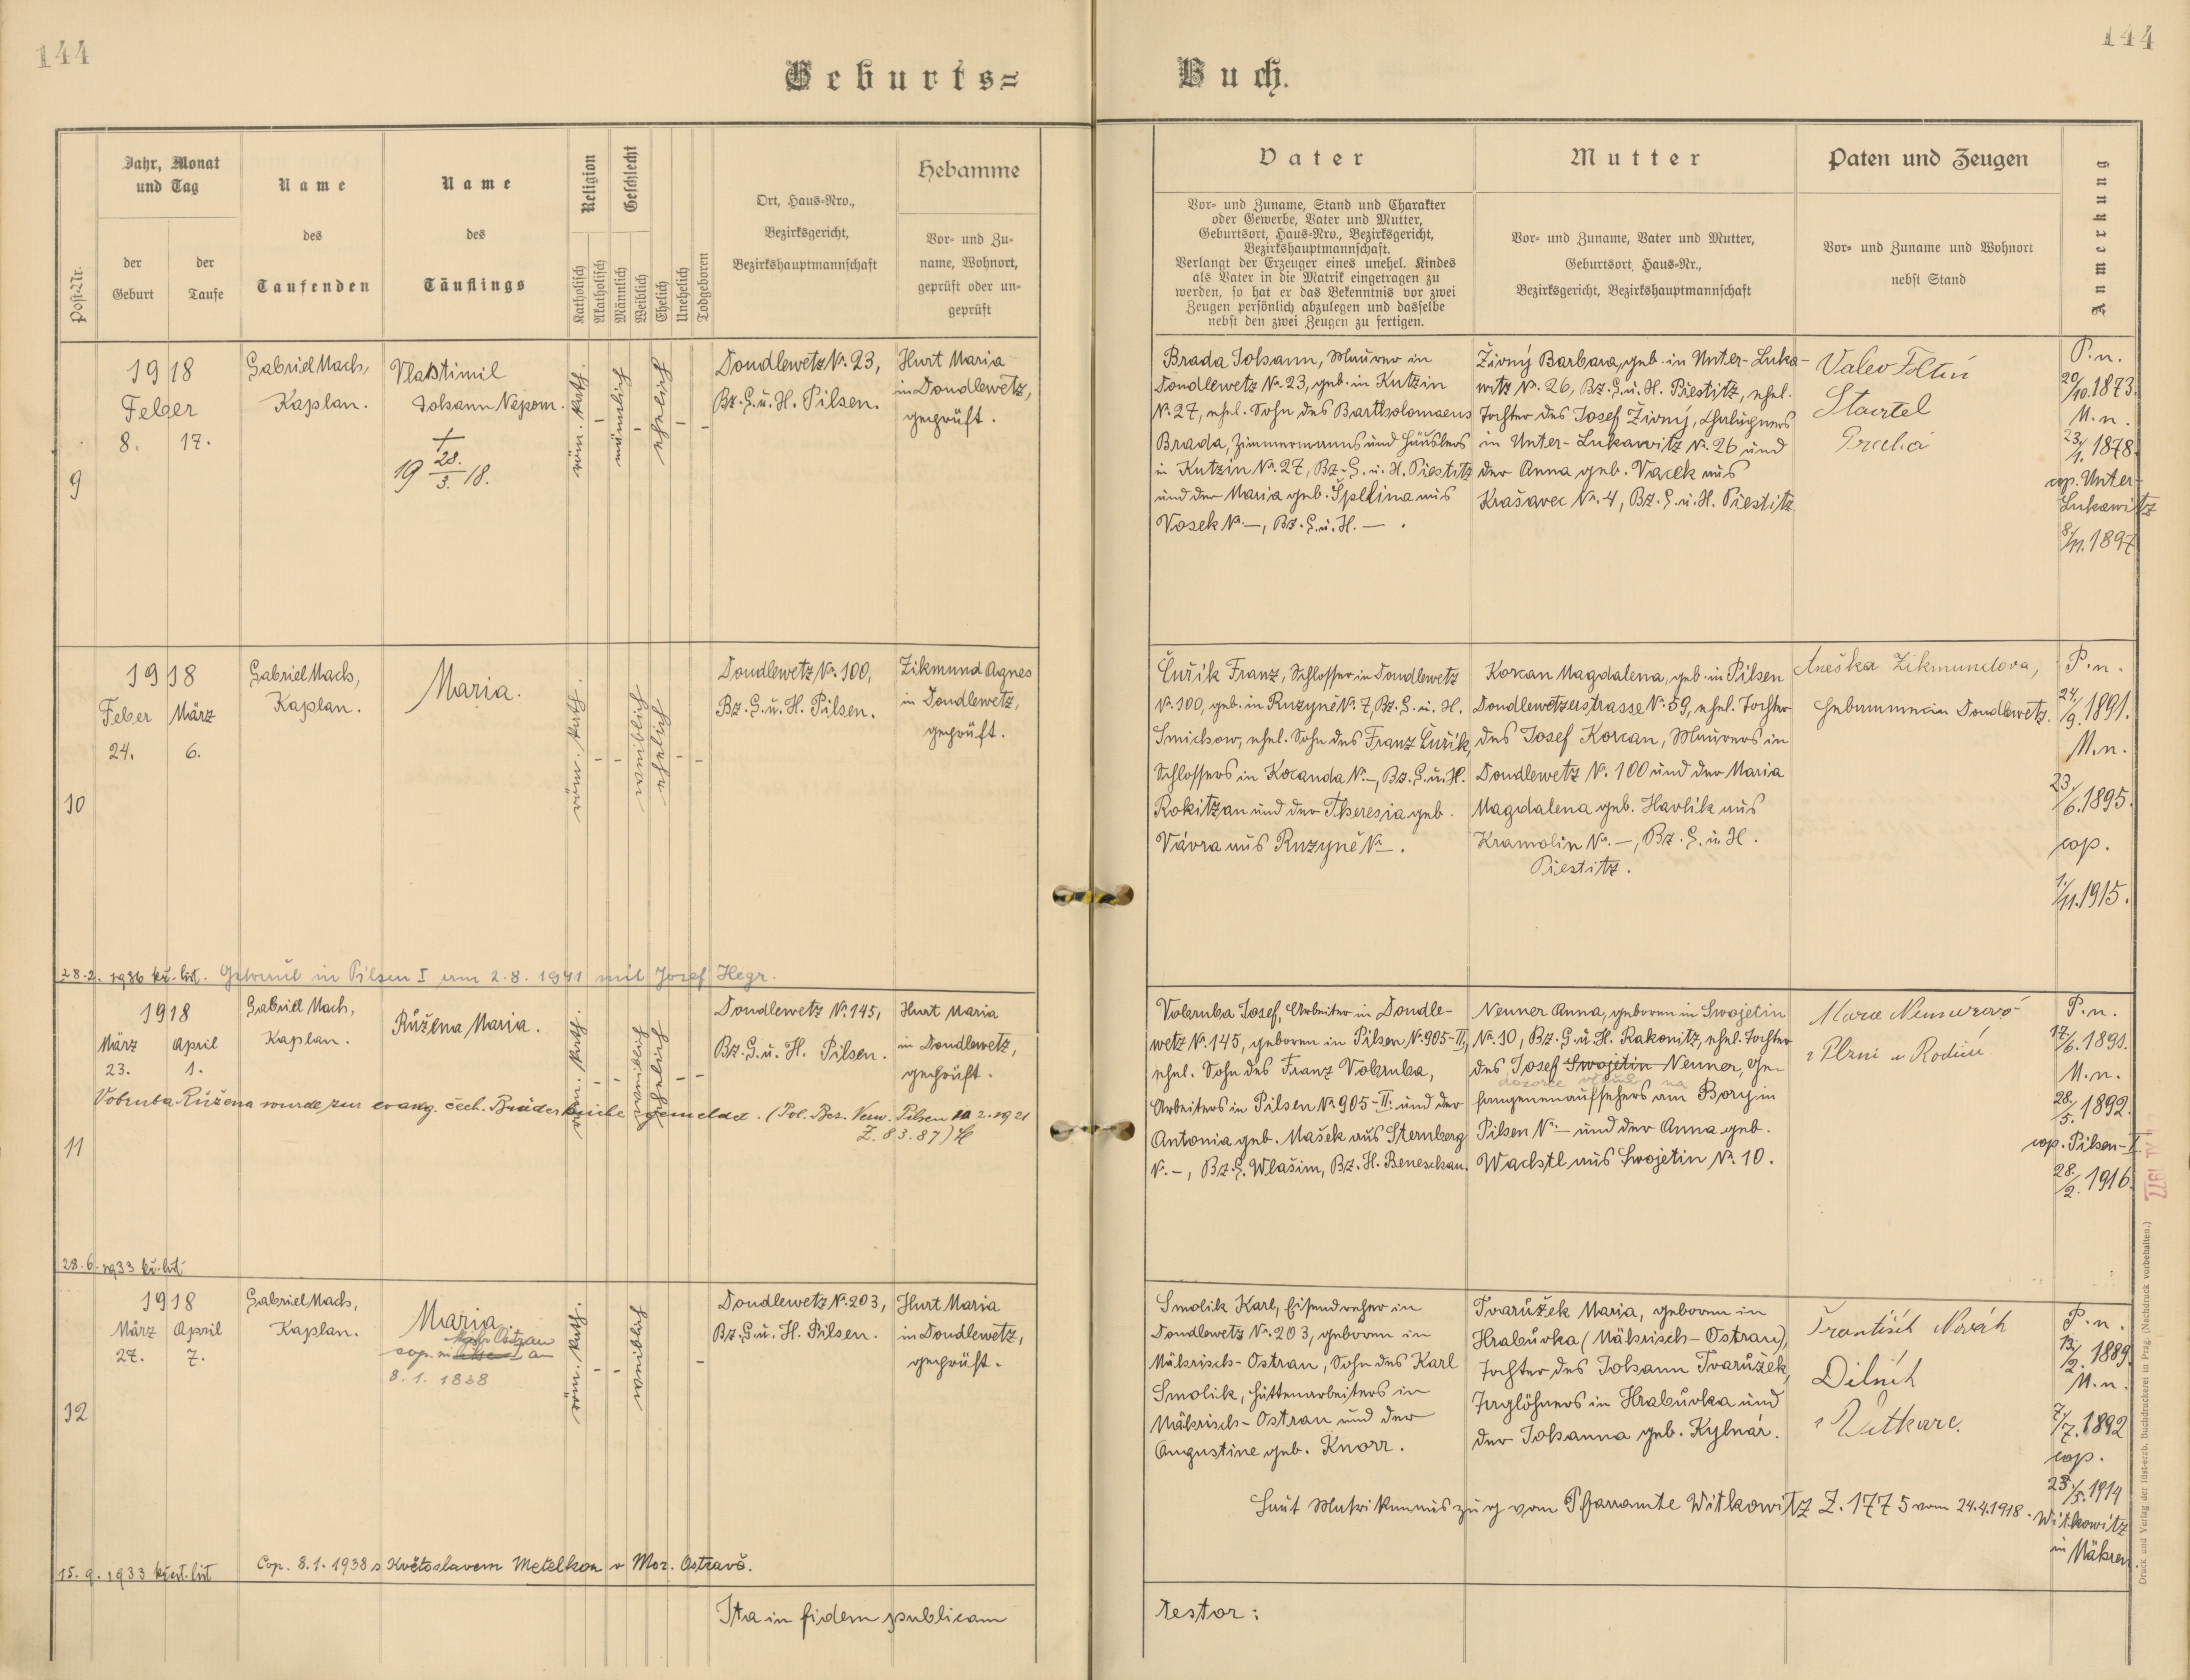 144
144
Geburts=
Buch.
Post-Nr.
Jahr, Monat
und Tag
der
Geburt
der
Taufe
Name
des
Taufenden
Name
des
Täuflings
Religion
Katholisch
Akatholisch
Geschlecht
Männlich
Weiblich
Ehelich
Unehelich
Todgeboren
Ort, Haus-Nro.,
Bezirksgericht,
Bezirkshauptmannschaft
Hebamme
Vor- und Zu-
name, Wohnort,
geprüft oder un-
geprüft
Vater
Vor- und Zuname, Stand und Charakter
oder Gewerbe, Vater und Mutter,
Geburtsort, Haus-Nro., Bezirksgericht,
Bezirkshauptmannschaft.
Verlangt der Erzeuger eines unehel. Kindes
als Vater in die Matrik eingetragen zu
werden, so hat er das Bekenntnis vor zwei
Zeugen persönlich abzulegen und dasselbe
nebst den zwei Zeugen zu fertigen.
Mutter
Vor- und Zuname, Vater und Mutter,
Geburtsort, Haus-Nr.,
Bezirksgericht, Bezirkshauptmannschaft
Paten und Zeugen
Vor- und Zuname und Wohnort
nebst Stand
Anmerkung
9
1918
Feber
8. 17.
Gabriel Mach,
Kaplan.
Vlastimil
Johann Nepom.
+
19 28./3. 18.
röm. kath.
-
männlich
-
ehelich
-
-
Dondlewetz Nr. 23,
Bz. G. u. H. Pilsen.
Hurt Maria
in Dondlewetz,
geprüft.
Brada Johann, Maurer in
Dondlewetz Nr. 23, geb. in Kutzin
N. 27, ehel. Sohn des Bartholomaeus
Brada, Zimmermanns und Häuslers
in Kutzin Nr. 27, Bz. G. u. H. Přestitz
und der Maria geb. Špelina aus
Vosek N. —, Bz. G. u. H. — .
Živný Barbara, geb. in Unter-Luka-
witz Nr. 26, Bz. G. u. H. Přestitz, ehel.
Tochter des Josef Živný,
in Unter-Lukawitz Nr. 26 und
der Anna geb. Vacek aus
Krašavec Nr. 4, Bz. G. u. H. Přestitz.
P. n.
20/10. 1873.
M. n.
23/1. 1878.
cop. Unter-
Lukawitz
8/11. 1897
10
1918
Feber März
24. 6.
Gabriel Mach,
Kaplan.
Maria.
röm. kath.
-
-
weiblich
ehelich
-
-
Dondlewetz Nr. 100,
Bz. G. u. H. Pilsen.
Zikmund Agnes
in Dondlewetz,
geprüft.
Čuřík Franz, Schlosser in Dondlewetz
Nr. 100, geb. in Ruzyně N. 7, Bz. G. u. H.
Smichow, ehel. Sohn des Franz Čuřík,
Schlossers in Kocanda N. —, Bz. G. u. H.
Rokitzan und der Theresia geb.
Vávra aus Ruzyně N. — .
Korcan Magdalena, geb. in Pilsen
Dondlewetzerstrasse N. 59, ehel. Tochter
des Josef Korcan, Maurers in
Dondlewetz N. 100 und der Maria
Magdalena geb. Havlík aus
Kramolin Nr. —, Bz. G. u. H.
Přestitz.
Aneška Zikmundova,
Hebamme in Dondlewetz.
P. n.
24/9. 1891.
M. n.
23/6. 1895.
cop.
1/11. 1915.
28.2. 1936 kř. list. Getraut in Pilsen I am 2.8.1941 mit Josef Hegr.
11
1918
März April
23. 1.
Gabriel Mach,
Kaplan.
Růžena Maria.
röm. kath.
-
-
weiblich
ehelich
-
-
Dondlewetz Nr. 145,
Bz. G. u. H. Pilsen.
Hurt Maria
in Dondlewetz,
geprüft.
Vobruba Růžena wurde zur evang. čech. Brüderkirche gemeldet. (Pol. Bez. Verw. Pilsen 10.2.1921
Z. 83.87)
Vobruba Josef, Arbeiter in Dondle-
wetz N. 145, geboren in Pilsen N. 905-II,
ehel. Sohn des Franz Vobruba,
Arbeiters in Pilsen Nr. 905-II. und der
Antonia geb. Mašek aus Sternberg
N. —, Bz. G. Wlašim, Bz. H. Beneschau.
Nenner Anna, geboren in Swojetin
N. 10, Bz. G. u. H. Rakonitz, ehel. Tochter
des Josef Swojetin Nenner, Ge-
fangenenaufsehers am Bory in
Pilsen N. — und der Anna geb.
Wachtl aus Swojetin Nr. 10.
P. n.
17/6. 1891.
M. n.
28./5. 1892.
cop. Pilsen-I.
28./2. 1916.
1977
28.6. 1933 kř. list
12
1918
März April
27. 7.
Gabriel Mach,
Kaplan.
Maria.
Mähr. Ostrau
cop. in
8. 1. 1938
röm. kath.
-
-
weiblich
-
Dondlewetz N. 203,
Bz. G. u. H. Pilsen.
Hurt Maria
in Dondlewetz,
geprüft.
Smolik Karl, Eisendreher in
Dondlewetz Nr. 203, geboren in
Mährisch-Ostrau, Sohn des Karl
Smolik, Hüttenarbeiters in
Mährisch-Ostrau und der
Augustine geb. Knorr.
Tvarůžek Maria, geboren in
Hrabůvka (Mährisch-Ostrau),
Tochter des Johann Tvarůžek,
Taglöhners in Hrabůvka und
der Johanna geb. Kylnár.
František Novák
Dělník
P. n.
13/2. 1889.
M. n.
7/7. 1892
cop.
23/5. 1914
Witkowitz
in Mähren.
Laut Matrikenauszug vom Pfarramte Witkowitz Z. 1775 vom 24.4.1918.
15. 9. 1933 křest. list Cop. 8.1.1938 s Květoslavem Metelkou v Mor. Ostravě.
Ita in fidem publicam
testor:
Druck und Verlag der fürst-erzb. Buchdruckerei in Prag. (Nachdruck vorbehalten.)